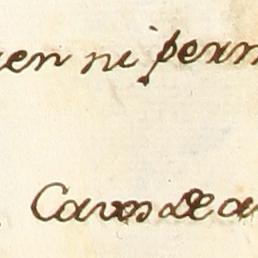 en ni perm
Cavos de a